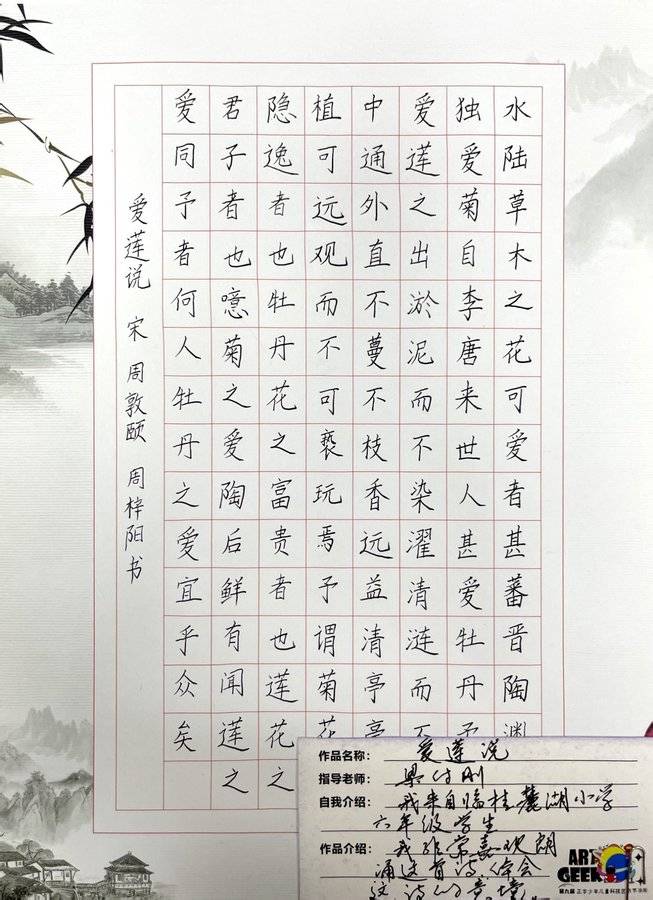 水陆草木之花可爱者甚蕃晋陶渊
独爱菊自李唐来世人甚爱牡丹予
爱莲之出淤泥而不染濯清涟而不
中通外直不蔓不枝香远益清亭亭
植可远观而不可亵玩焉予谓菊花
隐逸者也牡丹花之富贵者也莲花之
君子者也噫菊之爱陶后鲜有闻莲之
爱同予者何人牡丹之爱宜乎众矣
爱莲说 宋 周敦颐 周梓阳书
作品名称: 爱莲说
指导老师:
自我介绍: 我来自临桂麓湖小学
六年级学生
作品介绍: 我非常喜欢朗
诵这首诗,体会
这诗的意境。
ART
GEEK
第九届